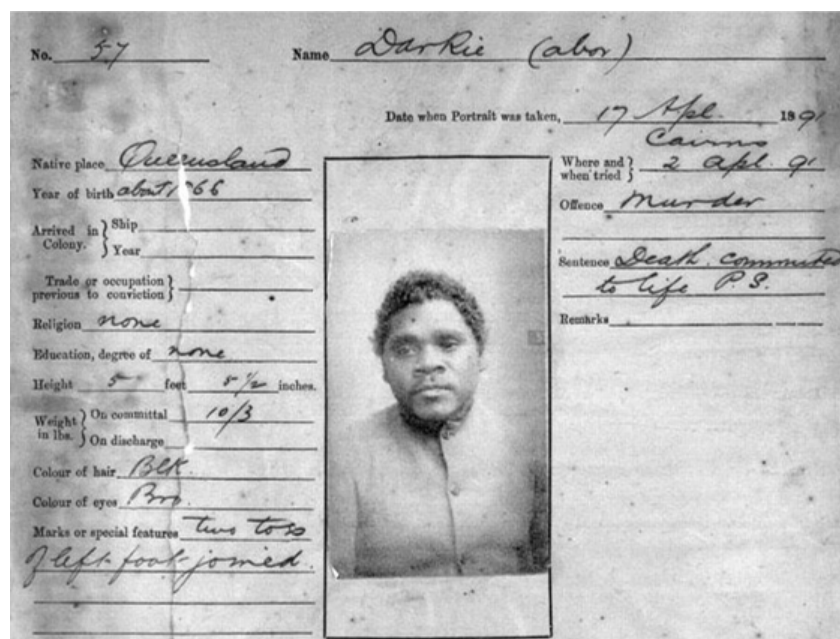 No. 57
Name Darkie (abor)
Date when Portrait was taken, 17 Apl. 1891
Native place Queensland
Year of birth about 1866
Arrived in Colony. } Ship
Year
Trade or occupation previous to conviction }
Religion none
Education, degree of none
Height 5 feet 5 1/2 inches.
Weight in lbs. } On committal 10/3
On discharge
Colour of hair Blk.
Colour of eyes Bro
Marks or special features two toes
of left foot joined.
Cairns
Where and when tried } 2 Apl. 91
Offence Murder
Sentence Death commuted
to life P.S.
Remarks